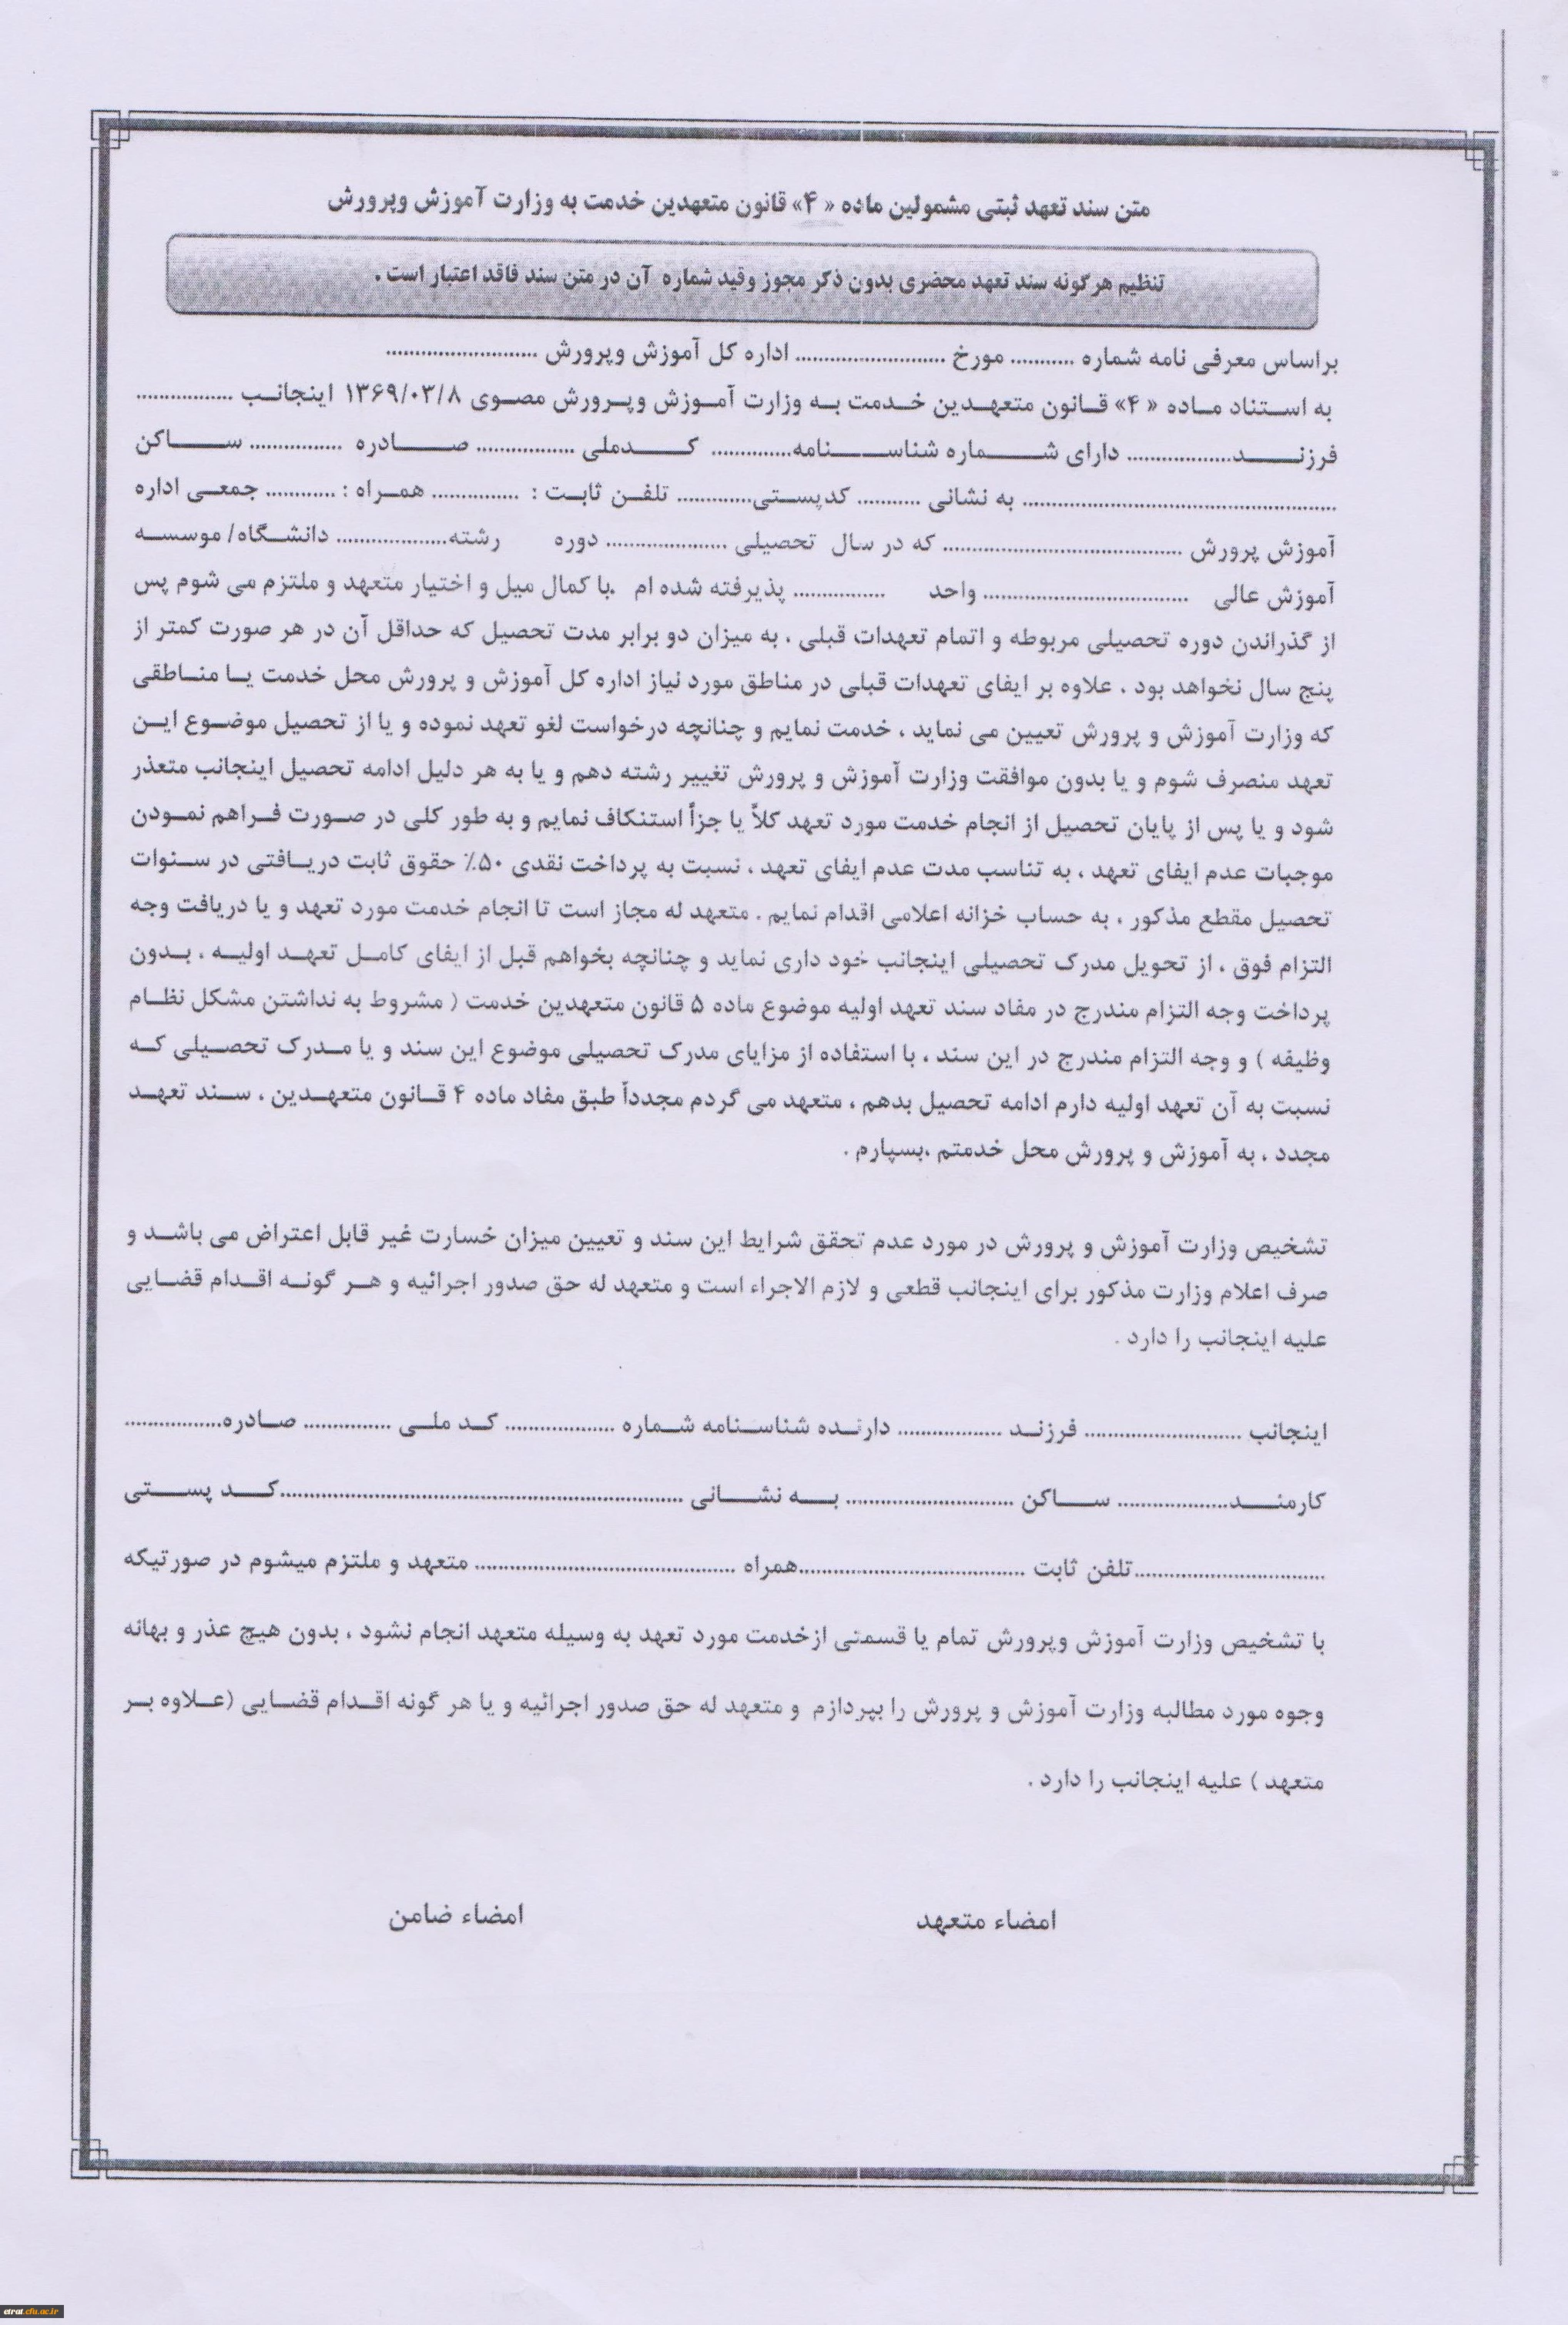 متن سند تعهد ثبتی مشمولین ماده « ۴» قانون متعهدین خدمت به وزارت آموزش وپرورش
تنظیم هرگونه سند تعهد محضری بدون ذکر مجوز وقید شماره آن در متن سند فاقد اعتبار است .
براساس معرفی نامه شماره ........... مورخ .......................... اداره کل آموزش وپرورش ..........................
به استناد ماده « ۴» قانون متعهدین خدمت به وزارت آموزش وپرورش مصوی ۱۳۶۹/۰۳/۸ اینجانب .................
فرزند.................. دارای شماره شناسنامه.............. کدملی ................. صادره ................ ساکن
...................................................... به نشانی ........... کدپستی............. تلفن ثابت : ............... همراه : ............ جمعی اداره
آموزش پرورش ......................................... که در سال تحصیلی ..................... دوره رشته................... دانشگاه/ موسسه
آموزش عالی ................................... واحد ................ پذیرفته شده ام .با کمال میل و اختیار متعهد و ملتزم می شوم پس
از گذراندن دوره تحصیلی مربوطه و اتمام تعهدات قبلی ، به میزان دو برابر مدت تحصیل که حداقل آن در هر صورت کمتر از
پنج سال نخواهد بود ، علاوه بر ایفای تعهدات قبلی در مناطق مورد نیاز اداره کل آموزش و پرورش محل خدمت یا مناطقی
که وزارت آموزش و پرورش تعیین می نماید ، خدمت نمایم و چنانچه درخواست لغو تعهد نموده و یا از تحصیل موضوع این
تعهد منصرف شوم و یا بدون موافقت وزارت آموزش و پرورش تغییر رشته دهم و یا به هر دلیل ادامه تحصیل اینجانب متعذر
شود و یا پس از پایان تحصیل از انجام خدمت مورد تعهد کلاً یا جزاً استنکاف نمایم و به طور کلی در صورت فراهم نمودن
موجبات عدم ایفای تعهد ، به تناسب مدت عدم ایفای تعهد ، نسبت به پرداخت نقدی ۵۰٪ حقوق ثابت دریافتی در سنوات
تحصیل مقطع مذکور ، به حساب خزانه اعلامی اقدام نمایم . متعهد له مجاز است تا انجام خدمت مورد تعهد و یا دریافت وجه
التزام فوق ، از تحویل مدرک تحصیلی اینجانب خود داری نماید و چنانچه بخواهم قبل از ایفای کامل تعهد اولیه ، بدون
پرداخت وجه التزام مندرج در مفاد سند تعهد اولیه موضوع ماده ۵ قانون متعهدین خدمت ( مشروط به نداشتن مشکل نظام
وظیفه ) و وجه التزام مندرج در این سند ، با استفاده از مزایای مدرک تحصیلی موضوع این سند و یا مدرک تحصیلی که
نسبت به آن تعهد اولیه دارم ادامه تحصیل بدهم ، متعهد می گردم مجدداً طبق مفاد ماده ۴ قانون متعهدین ، سند تعهد
مجدد ، به آموزش و پرورش محل خدمتم ،بسپارم .
تشخیص وزارت آموزش و پرورش در مورد عدم تحقق شرایط این سند و تعیین میزان خسارت غیر قابل اعتراض می باشد و
صرف اعلام وزارت مذکور برای اینجانب قطعی و لازم الاجراء است و متعهد له حق صدور اجرائیه و هر گونه اقدام قضایی
علیه اینجانب را دارد .
اینجانب ........................... فرزند .................. دارنده شناسنامه شماره ................... کد ملی ............... صادره.................
کارمند................... ساکن ............................. به نشانی .....................................................................کد پستی
.................................تلفن ثابت .......................................همراه ............................................. متعهد و ملتزم میشوم در صورتیکه
با تشخیص وزارت آموزش وپرورش تمام یا قسمتی ازخدمت مورد تعهد به وسیله متعهد انجام نشود ، بدون هیچ عذر و بهانه
وجوه مورد مطالبه وزارت آموزش و پرورش را بپردازم و متعهد له حق صدور اجرائیه و یا هر گونه اقدام قضایی (علاوه بر
متعهد ) علیه اینجانب را دارد .
امضاء متعهد امضاء ضامن
etrat.cfu.ac.ir